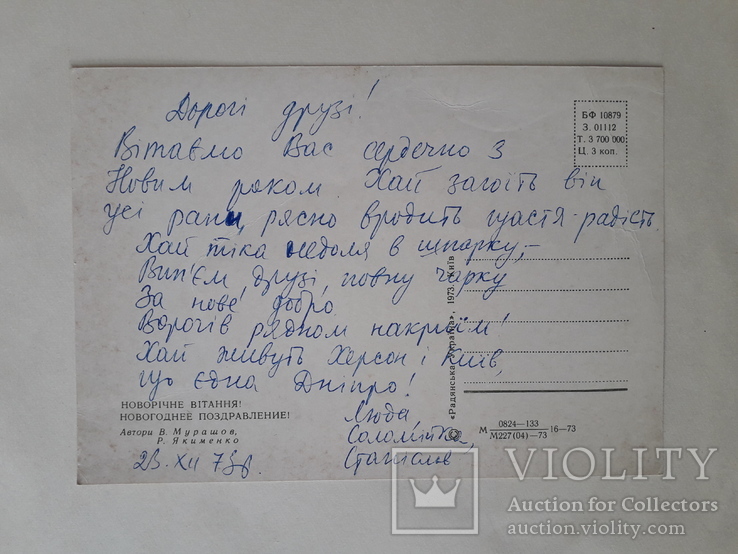 Дорогі друзі!
Вітаємо Вас сердечно з
Новим роком. Хай загоїть він
усі рани, рясно вродить щастя-радість.
Хай тіка недоля в шпарку,–
Вип'єм, друзі, повну чарку
За нове добро
Ворогів рядном накриєм!
Хай живуть Херсон і Київ,
що єдна Дніпро!
Люда,
Соломійка,
Станіслав
23.XII 73р.
БФ 10879
З. 01112
Т. 3 700 000
Ц. 3 коп.
«Радянська Україна», 1973. Київ
НОВОРІЧНЕ ВІТАННЯ!
НОВОГОДНЕЕ ПОЗДРАВЛЕНИЕ!
Автори В. Мурашов,
Р. Якименко
М 0824—133
М227(04)—73 16—73
VIOLITY
Auction for Collectors
auction.violity.com